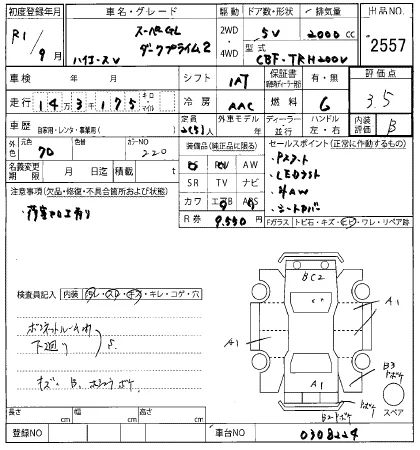 初度登録年月 車名・グレード 駆動 ドア数・形状 排気量 出品NO.
R1/9月 ハイエースV スーパーGL ダークプライム2 2WD・4WD 5V 2000cc 2557
型式 CBF-TRH200V
車検 年 月 シフト IAT 保証書 有・無 評価点
走行 143175 キロ・マイル 冷房 AAC 燃料 G 3.5
車歴 自家用・レンタ・事業用( ) 定員 2(5)人 外車モデル 年 ディーラー 並行 ハンドル 左・右 内装評価 B
外色 元色 70 色替 カラーNO 220 装備品(純正品に限る) セールスポイント(正常に作動するもの)
名義変更期限 月 日迄 積載 t AW
SR TV ナビ
カワ エアB ABS
R券 9.550円
LEDライト
AW
シートカバー
注意事項(欠品・修復・不具合箇所および状態)
Fガラス トビ石・キズ・ヒビ・ワレ・リペア跡
検査員記入 内装 汚レ・スレ・キズ・キレ・コゲ・穴
ボンネットルーム内
下廻り S
キズ B
BC2
A1
A1
A1
B3
ボケ
スペア
長さ cm 幅 cm 高さ cm
登録NO 車台NO 0308224